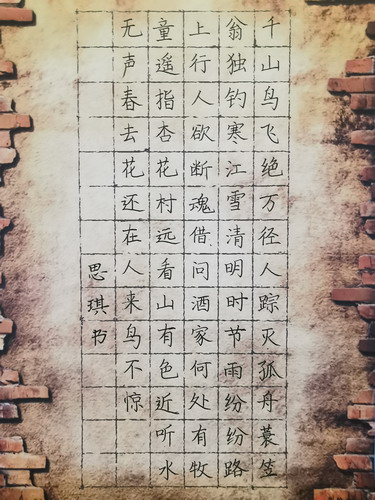 千山鸟飞绝万径人踪灭孤舟蓑笠
翁独钓寒江雪清明时节雨纷纷路
上行人欲断魂借问酒家何处有牧
童遥指杏花村远看山有色近听水
无声春去花还在人来鸟不惊
思琪书